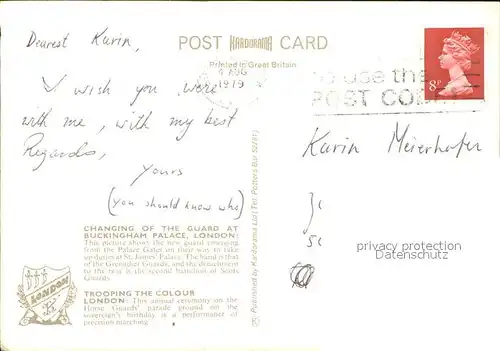 Dearest Karin,
I wish you were
with me, with my best
Regards,
yours
(you should know who)
POST KARDORAMA CARD
Printed in Great Britain
AUG
1979
use the
POST CODE
8P
Karin Meierhofer
privacy protection
Datenschutz
CHANGING OF THE GUARD AT
BUCKINGHAM PALACE, LONDON:
This picture shows the new guard emerging
from the Palace Gates on their way to take
up duties at St. James' Palace. The band is that
of the Grenadier Guards, and the detachment
to the rear is the second battalion of Scots
Guards.
TROOPING THE COLOUR
LONDON: This annual ceremony on the
Horse Guards' parade ground on the
sovereign's birthday is a performance of
precision marching.
LONDON
Published by Kardorama Ltd (Tel: Potters Bar